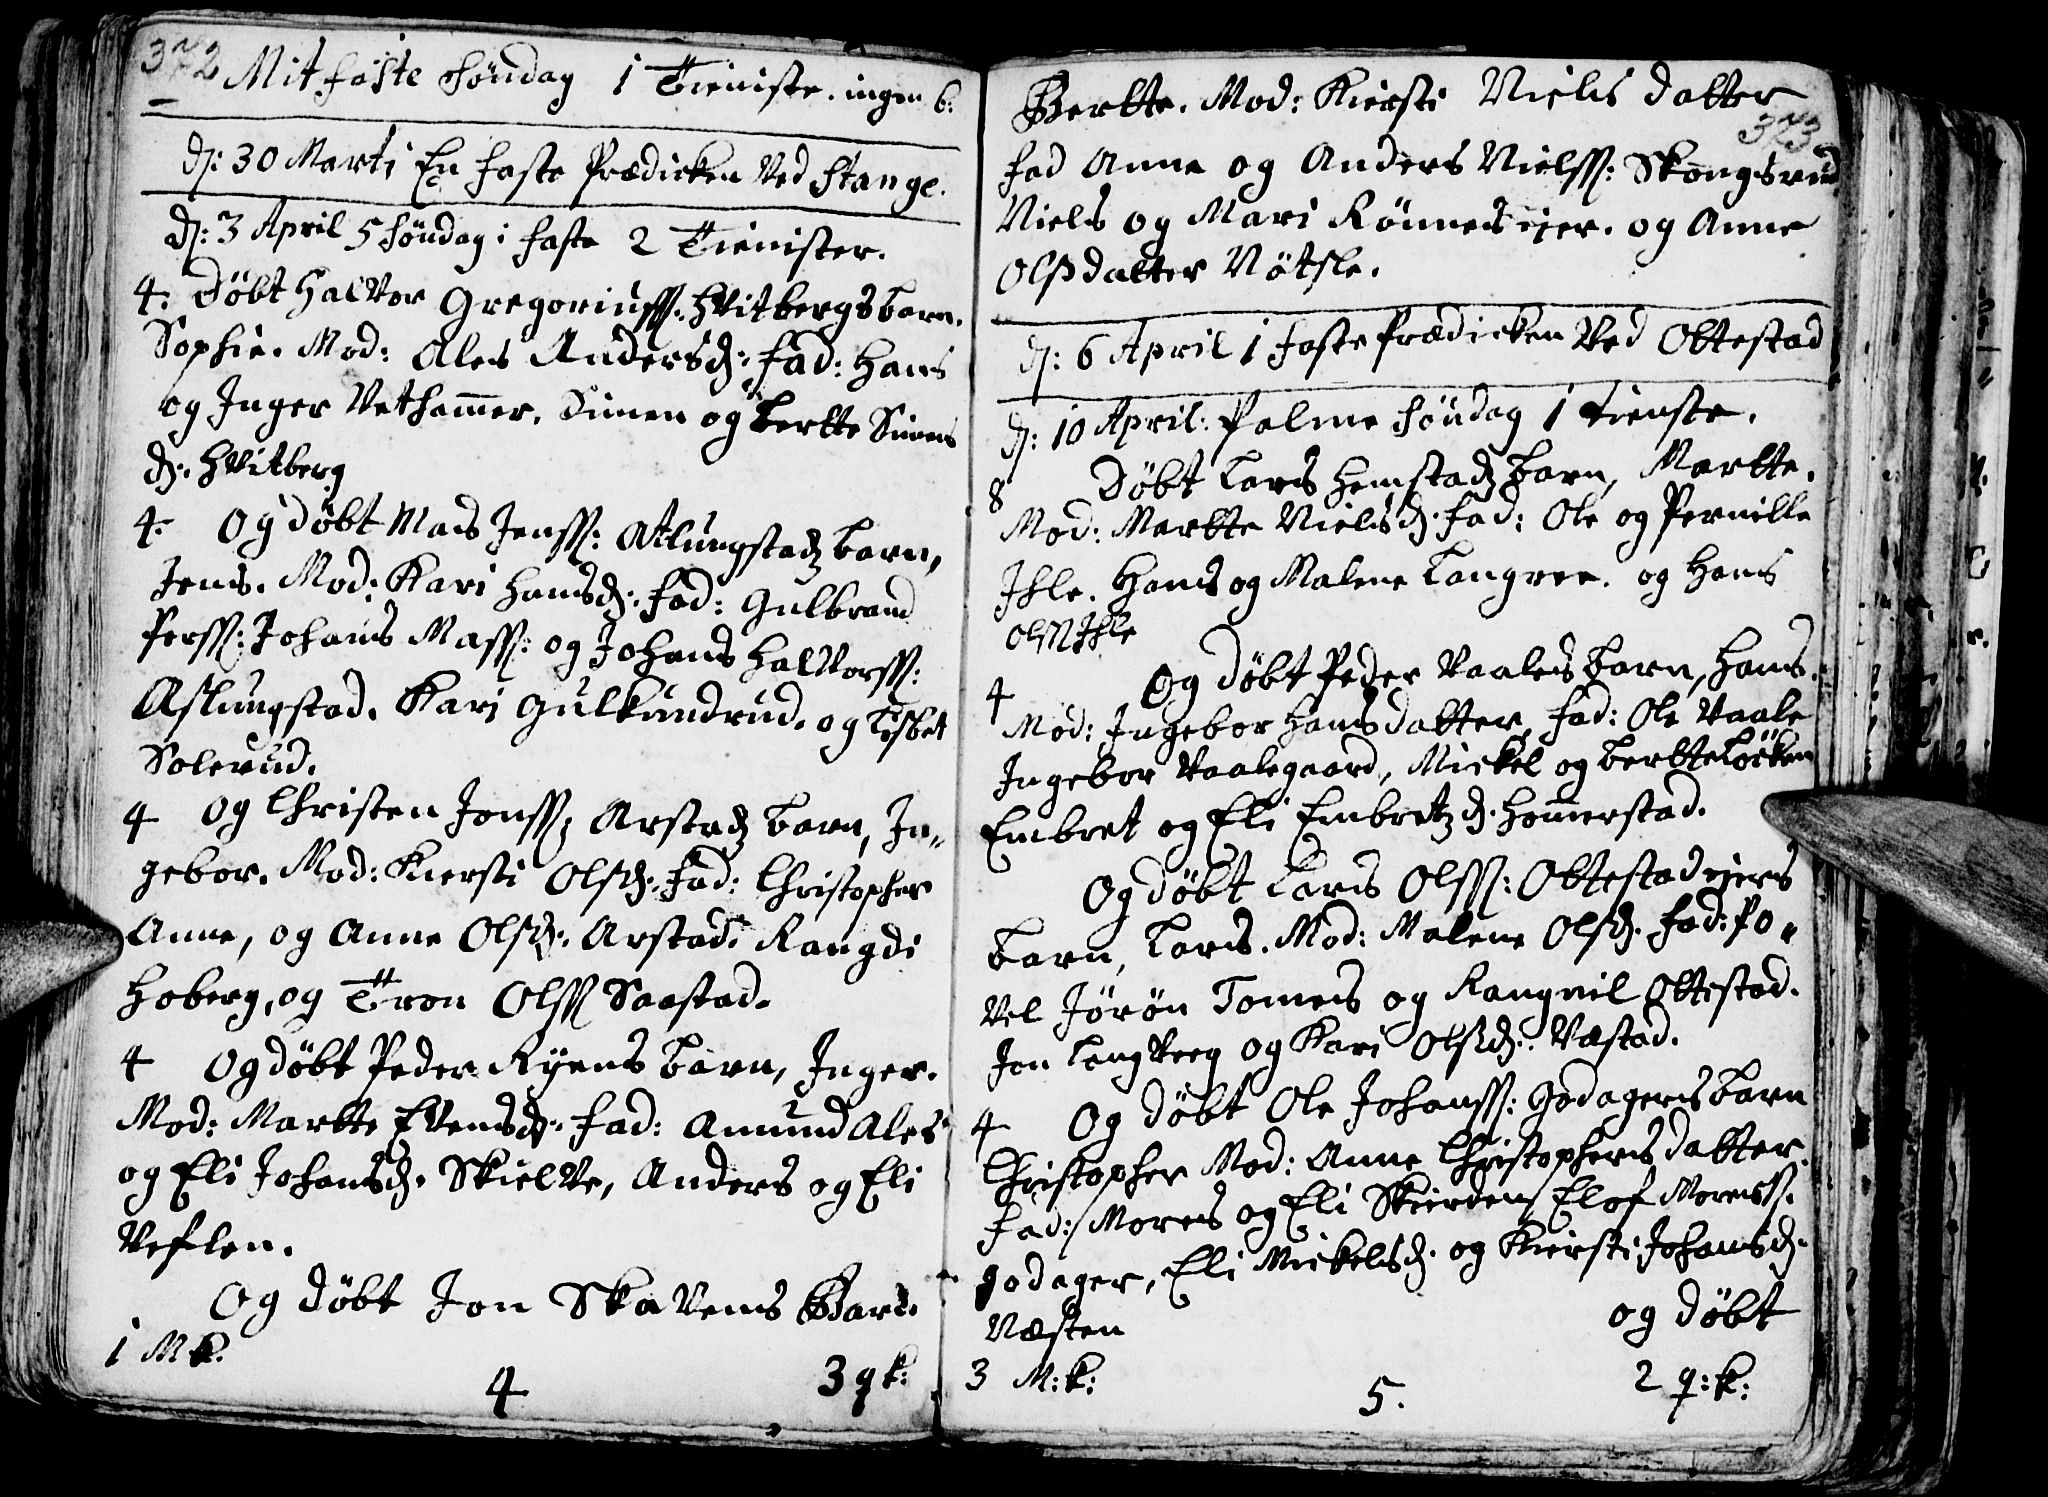 372 Mit faste Søndag 1 Tieniste. ingen 6.
d: 30 Marti En faste Prædicken Ved Stange.
d: 3 April 5 Søndag i faste 2 Tienister.
4. Døbt Halvor Gregoriuss: Hvitbergs barn.
Sophie. Mod: Ales Andersd: fad: Hans
og Inger Vethammer. Simen og Bertte Simens
d: Hvitberg
4. Og døbt Mads Jenss: Atlungstad barn,
Jens. Mod: Kari Hansd: fad: Gulbrand
Perss: Johans Mass: og Johans Halvorss:
Aslungstad. Kari Gulkundrud. og Lisbet
Solerud.
4 og Christen Jonss: Arstad barn, In„
gebor. Mod: Kiersti Olsd: fad: Christopher
Anne, og Anne Olsd: Arstad. Rangdi
Hoberg, og Tron Olss Saastad.
4 Og døbt Peder Ryens barn, Inger.
Mod: Martte Evensd: fad: Amund Ales
og Eli Johansd: Skielve, Anders og Eli
Veflen.
Og døbt Jon Skavens Barn.
1 M k. 4 3 q k:
Bertte. Mod: Kiersti Niels datter
373
fad Anne og Anders Nielss: Skongsrud
Niels og Mari Rønnes ejer. og Anne
Olsdatter Nøtsle.
d: 6 April 1 faste Prædicken Ved Ottestad
d: 10 April: Palme Søndag 1 Tienste.
8 Døbt Lars Hemstad barn, Martte.
Mod: Martte Nielsd: fad: Ole og Pernille
Ihle. Hans og Malene Langree. og Hans
Olss Ihle
4 Og døbt Peder Vaales barn, Hans.
Mod: Ingebor Hansdatter, fad: Ole Vaale
Ingebor Vaalegaard, Mickel og Bertte Løcken
Embret og Eli Embretzd: Hommerstad.
Og døbt Lars Olss: Ottestadejers
barn, Lars. Mod: Malene Olsd: fad: Po„
vel Jørøn Tomes og Rangnil Ottestad.
Jon Langberg og Kari Olsd: Væstad.
4 Og døbt Ole Johanss: Godagers barn
Christopher Mod: Anne Christophersdatter.
fad: Mores og Eli Skierden Elof Moress.
Godager, Eli Mickelsd: og Kiersti Johansd:
Næsten og døbt
3 M: k: 5. 2 q: k: